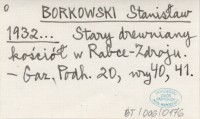 BORKOWSKI Stanisław
1932... Stary drewniany
kościół w Rabce-Zdroju.
- Gaz. Podh. 20, nry 40, 41.